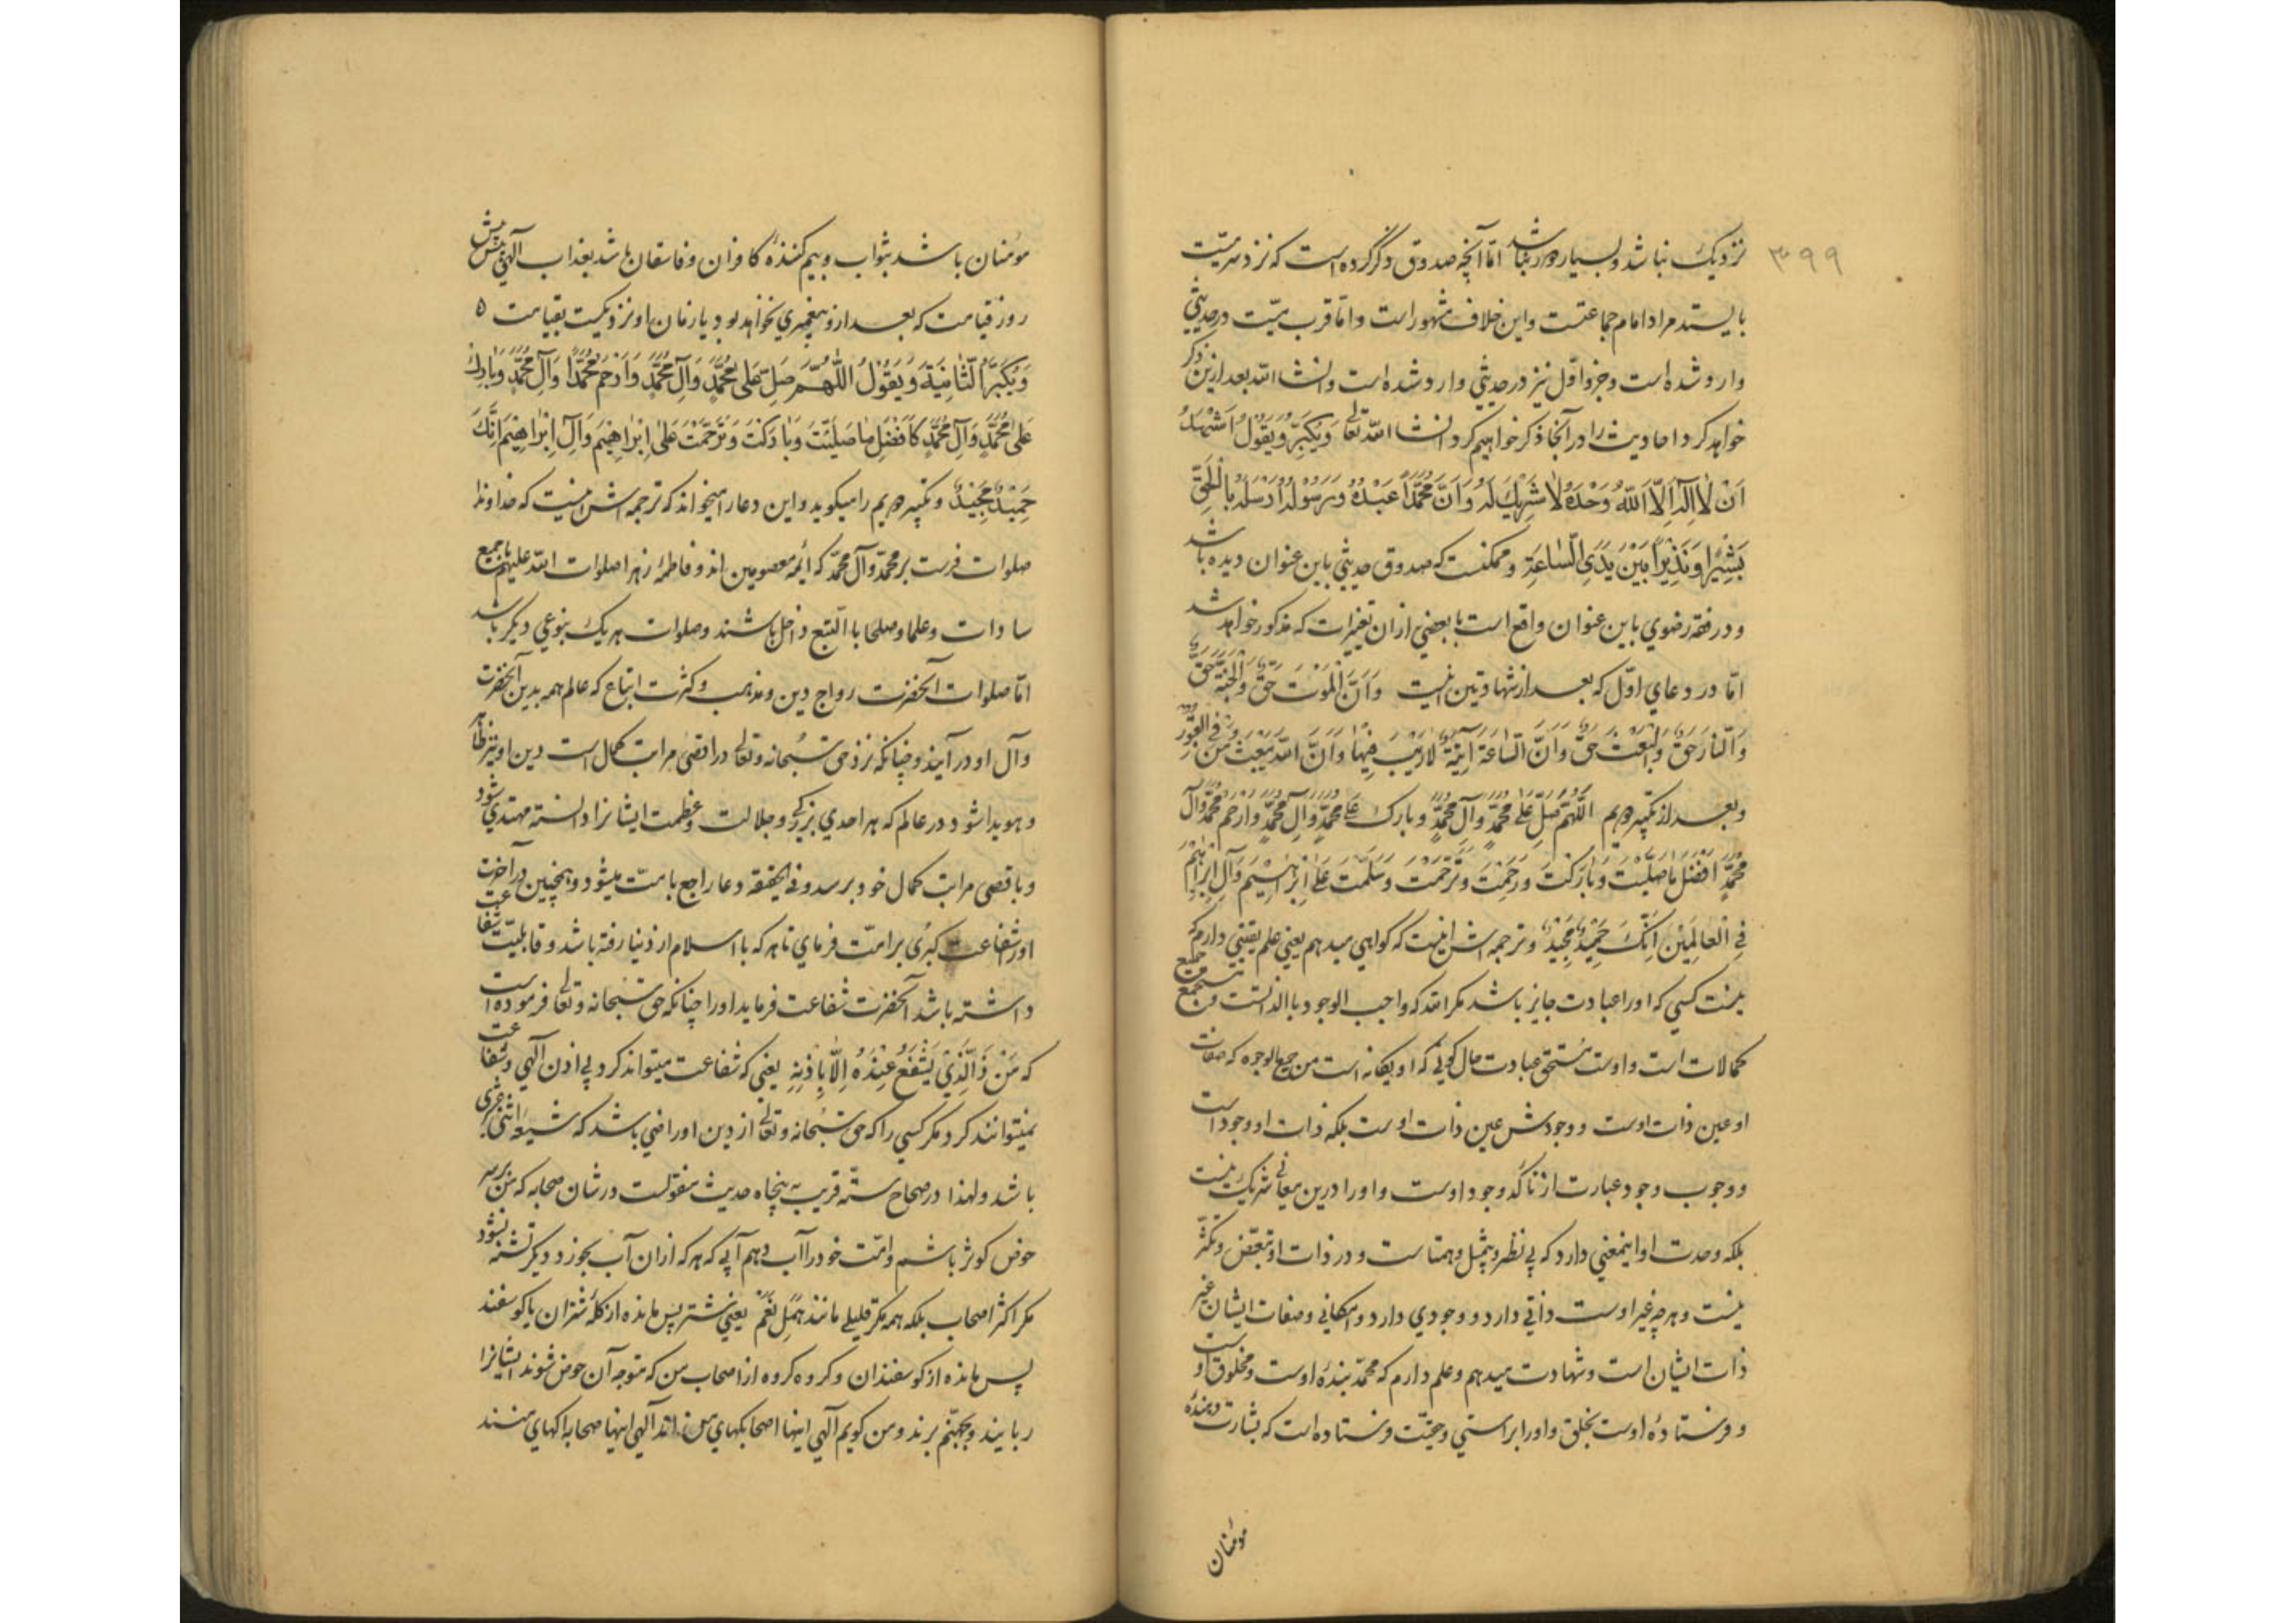 ۳۹۹
نزدیک نباشد و بسیار دور نباشد امّا آنچه صدوق ذکر کرده است که نزد سر میّت
بایستد مراد امام جماعتست و این خلاف مشهور است و امّا قرب میّت در حدیثی
وارد شده است و جزو اوّل نیز در حدیثی وارد شده است و انشاالله بعد ازین ذکر
خواهد کرد احادیث را در آنجا ذکر خواهیم کرد انشاالله تعالی وَیُکَبِّرُ وَیَقُولُ اَشْهَدُ
اَنْ لَا اِلٰهَ اِلَّا اللّٰهُ وَحْدَهُ لَا شَرِیْكَ لَهُ وَاَنَّ مُحَمَّدًا عَبْدُهُ وَرَسُولُهُ اَرْسَلَهُ بِالْحَقِّ
بَشِیْرًا وَنَذِیْرًا بَیْنَ یَدَیِ السَّاعَةِ و ممکنست که صدوق حدیثی باین عنوان دیده باشد
و در فقه رضوی باین عنوان واقع است با بعضی ازان تغییرات که مذکور خواهد شد
امّا در دعای اوّل که بعد از شهادتین اینست وَاَنَّ الْمَوْتَ حَقٌّ وَالْجَنَّةَ حَقٌّ
وَالنَّارَ حَقٌّ وَالْبَعْثَ حَقٌّ وَاَنَّ السَّاعَةَ آتِیَةٌ لَارَیْبَ فِیْهَا وَاَنَّ اللّٰهَ یَبْعَثُ مَنْ فِی الْقُبُوْرِ
و بعد از تکبیر دویم اَللّٰهُمَّ صَلِّ عَلٰی مُحَمَّدٍ وَآلِ مُحَمَّدٍ وبارك عَلٰی مُحَمَّدٍ وَآلِ مُحَمَّدٍ وَارْحَمْ مُحَمَّدًا وَآلَ
مُحَمَّدٍ اَفْضَلَ مَا صَلَّیْتَ وَبَارَکْتَ وَرَحِمْتَ وَتَرَحَّمْتَ وَسَلَّمْتَ عَلٰی اِبْرَاهِیْمَ وَآلِ اِبْرَاهِیْمَ
فِی الْعَالَمِیْنَ اِنَّكَ حَمِیْدٌ مَجِیْدٌ و ترجمه اش اینست که گواهی میدهم یعنی علم یقینی دارم که
نیست کسی که او را عبادت جایز باشد مگر الله که واجب الوجود بالذاتست مستجمع جمیع
کمالات است و اوست مستحق عبادت که او یگانه است من جمیع الوجوه که صفات
او عین ذات اوست و وجودش عین ذات اوست بلکه ذات او وجود است
و وجوب وجود عبارت از تأکّد وجود اوست و او را درین معانی شریک نیست
بلکه وحدت او اینمعنی دارد که بی نظیر و بیمثل و همتاست و در ذات او تبعّض و تکثّر
نیست و هر چه غیر اوست ذاتی دارد و وجودی دارد و امکانی و صفات ایشان غیر
ذات ایشان است و شهادت میدهم و علم دارم که محمّد بندۀ اوست و مخلوق اوست
و فرستادۀ اوست بخلق و او را براستی و حقیّت فرستاده است که بشارت دهندۀ
مؤمنان
مؤمنان باشد بثواب و بیم کنندۀ کافران و فاسقان باشد بعذاب آلهی پیش
روز قیامت که بعد ازو پیغمبری نخواهد بود یا زمان او نزدیکست بقیامت
وَیُکَبِّرُ الثَّانِیَةَ وَیَقُوْلُ اَللّٰهُمَّ صَلِّ عَلٰی مُحَمَّدٍ وَآلِ مُحَمَّدٍ وَارْحَمْ مُحَمَّدًا وَآلَ مُحَمَّدٍ وَبَارِكْ
عَلٰی مُحَمَّدٍ وَآلِ مُحَمَّدٍ کَاَفْضَلِ مَا صَلَّیْتَ وَبَارَکْتَ وَتَرَحَّمْتَ عَلٰی اِبْرَاهِیْمَ وَآلِ اِبْرَاهِیْمَ اِنَّكَ
حَمِیْدٌ مَجِیْدٌ و تکبیر دویم را میگوید و این دعا را میخواند که ترجمه اش اینست که خداوندا
صلوات فرست بر محمّد و آل محمّد که ائمه معصومین اند و فاطمۀ زهرا صلوات الله علیهم با جمیع
سادات و علما و صلحا با التبع داخل باشند و صلوات هر یک بنوعی دیگر باشد
امّا صلوات آنحضرت رواج دین و مذهب و کثرت اتباع که عالم همه بدین آنحضرت
و آل او در آیند و چنانکه نزد حق سُبحانه و تعالی در اقصی مراتب کمال است دین او نیز ظاهر
و هویدا شود در عالم که هر احدی بزرگی و جلالت و عظمت ایشانرا دانسته مهتدی شود
و باقصی مراتب کمال خود برسد و فی الحقیقة دعا راجع بامّت میشود و همچنین در آخرت
او را شفاعت کبری بر امّت فرمای تا هر که با اسلام از دنیا رفته باشد و قابلیّت شفاعت
داشته باشد آنحضرت شفاعت فرماید او را چنانکه حق سُبحانه و تعالی فرموده است
که مَنْ ذَا الَّذِیْ یَشْفَعُ عِنْدَهُ اِلَّا بِاِذْنِهِ یعنی که شفاعت میتواند کرد بی اذن آلهی و شفاعت
نمیتوانند کرد مگر کسی را که حق سُبحانه و تعالی از دین او راضی باشد که شیعۀ اثنی عشری
باشد و لهذا در صحاح ستّه قریب به پنجاه حدیث منقولست در شان صحابه که من بر سر
حوض کوثر باشم و امّت خود را آب دهم آبی که هر که ازان آب بخورد دیگر تشنه نشود
مگر اکثر اصحاب بلکه همه مگر قلیلی مانند هَمَلِ نَعَم یعنی شتر پس مانده از گلۀ شتران یا گوسفند
پس مانده از گوسفندان و گروه گروه از اصحاب من که متوجه آن حوض شوند ایشانرا
ربایند و بجهنّم برند و من گویم آلهی اینها اصحابکهای من اند آلهی اینها صحابه اکهای منند